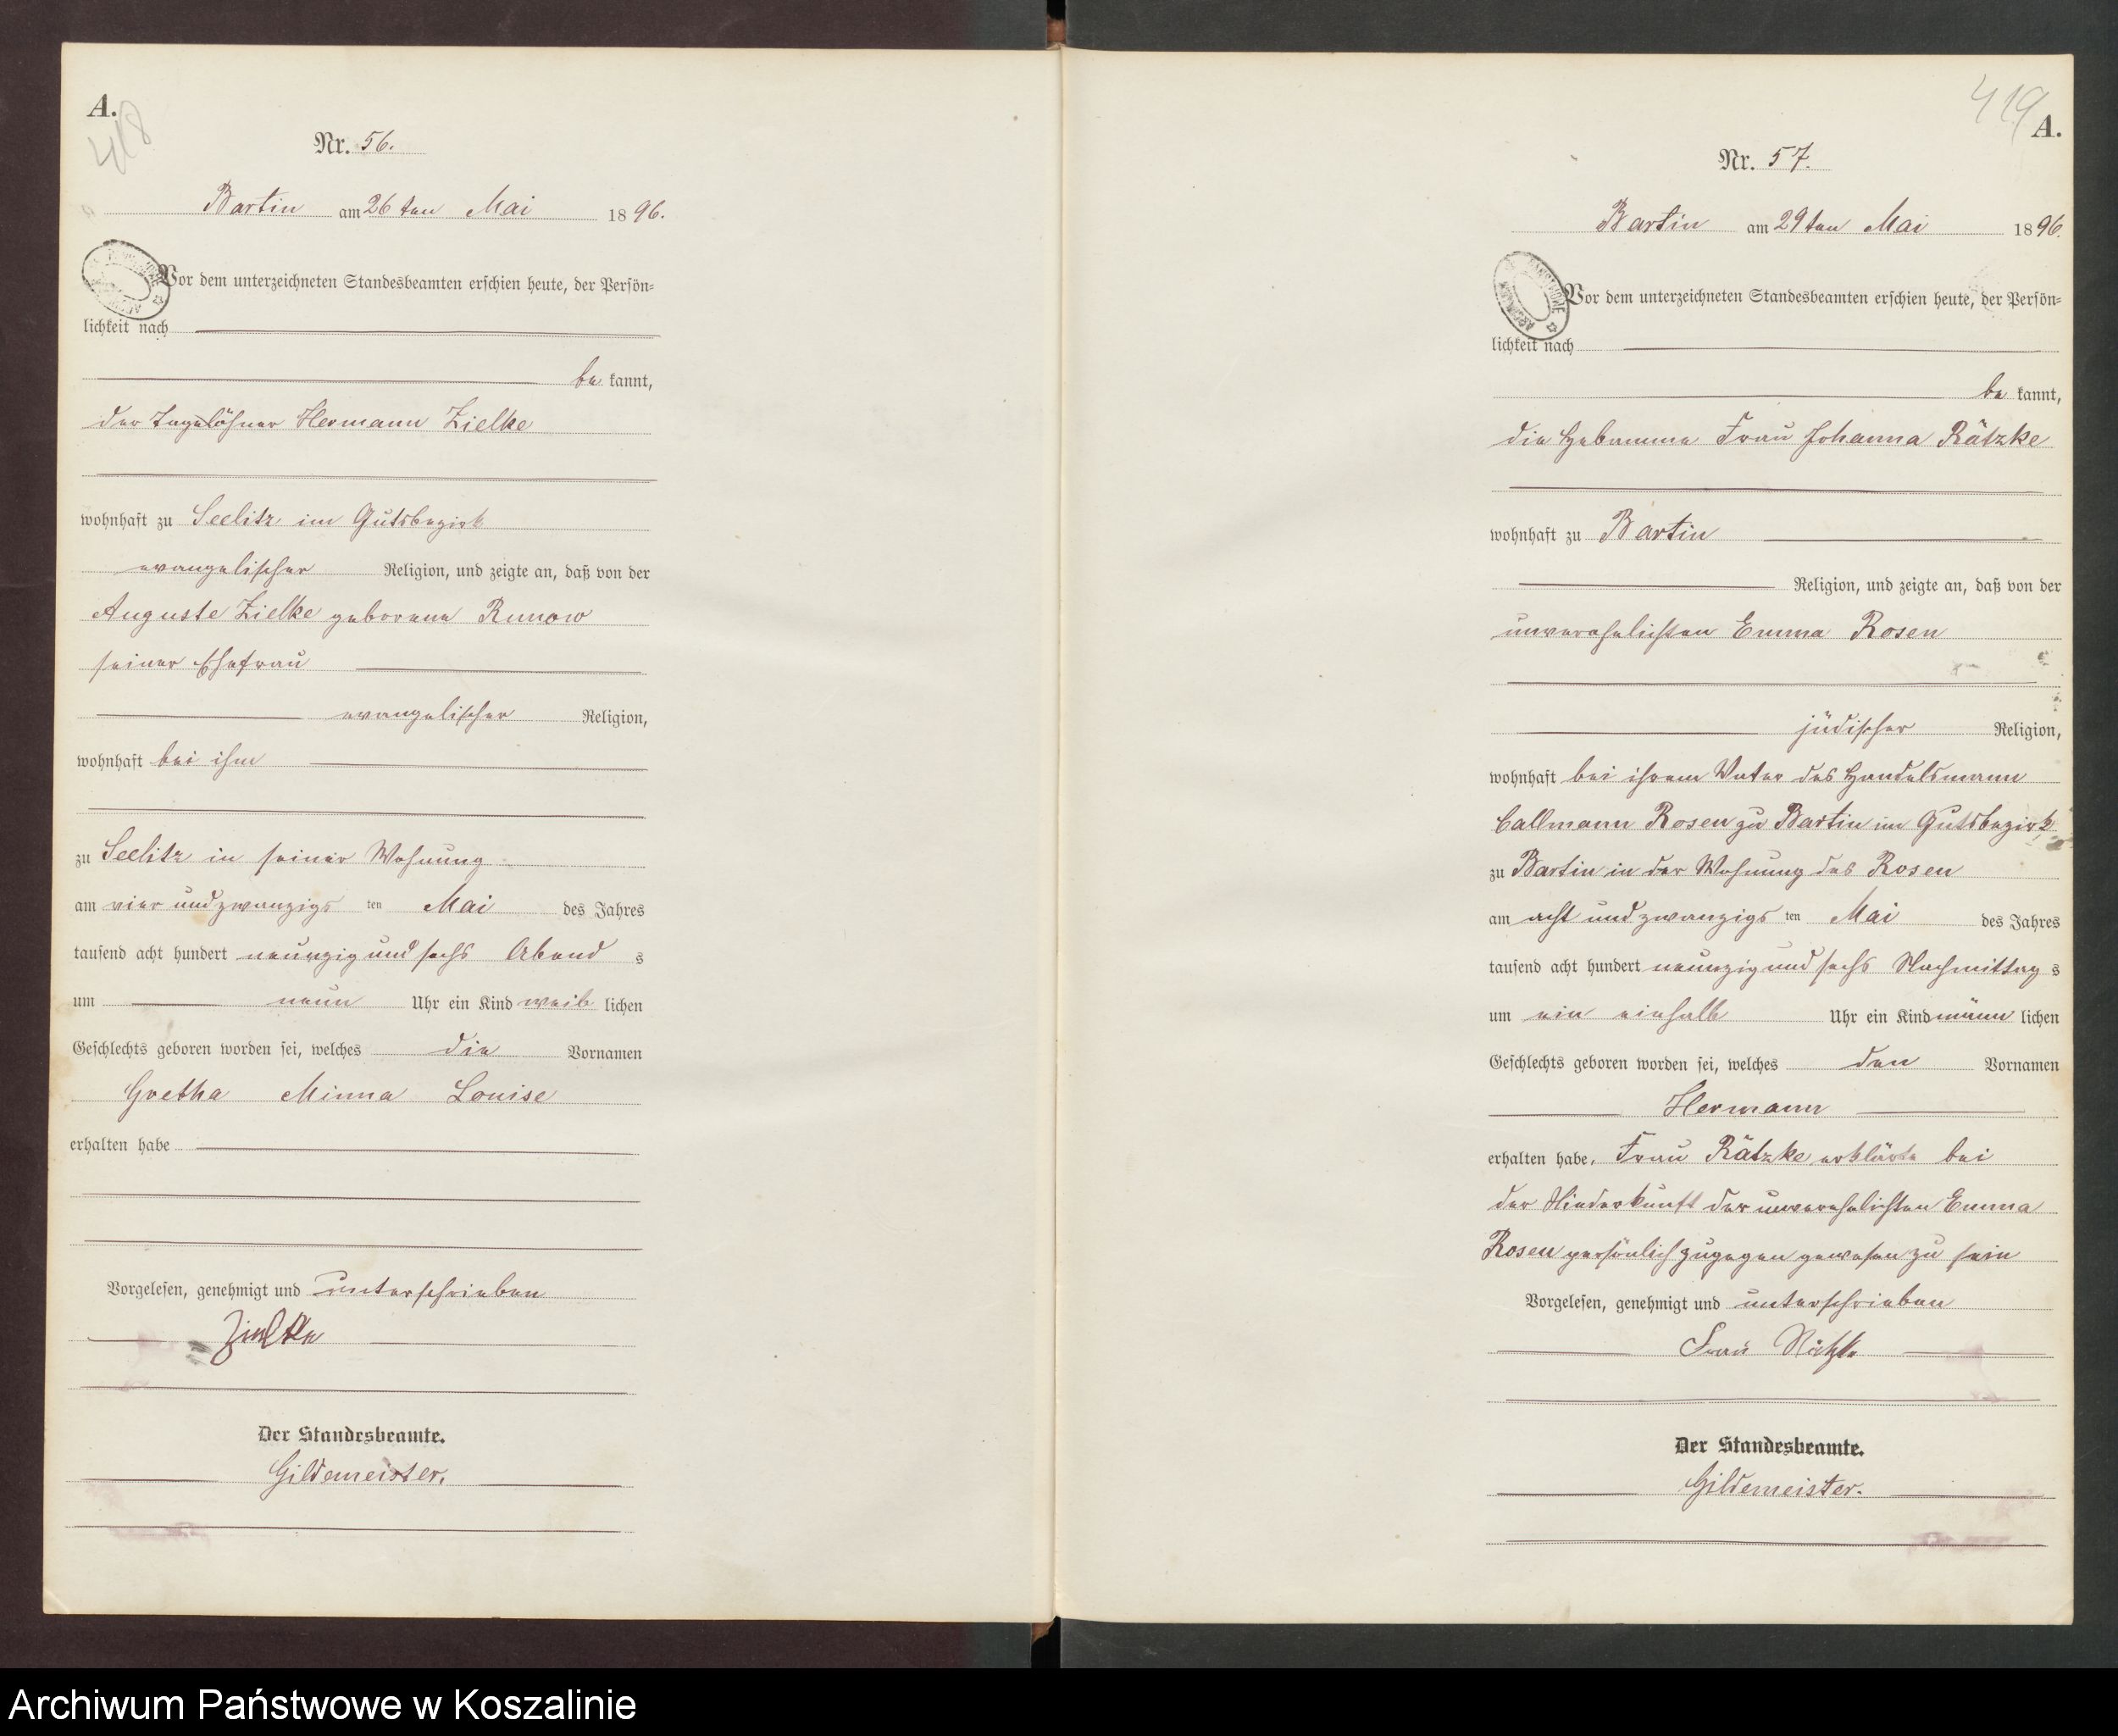 A.
418
Nr. 56.
Bartin am 26ten Mai 1896.
Vor dem unterzeichneten Standesbeamten erschien heute, der Persön-
lichkeit nach
be kannt,
der Tagelöhner Hermann Zielke
wohnhaft zu Seelitz im Gutsbezirk
evangelischer Religion, und zeigte an, daß von der
Auguste Zielke geborene Runow
seiner Ehefrau
evangelischer Religion,
wohnhaft bei ihm
zu Seelitz in seiner Wohnung
am vier und zwanzigs ten Mai des Jahres
tausend acht hundert neunzig und sechs Abend s
um neun Uhr ein Kind weib lichen
Geschlechts geboren worden sei, welches die Vornamen
Gretha Minna Louise
erhalten habe
Vorgelesen, genehmigt und unterschrieben
Zielke
Der Standesbeamte.
Gildemeister.
419
A.
Nr. 57.
Bartin am 29ten Mai 1896.
Vor dem unterzeichneten Standesbeamten erschien heute, der Persön-
lichkeit nach
be kannt,
die Hebamme Frau Johanna Rätzke
wohnhaft zu Bartin
Religion, und zeigte an, daß von der
unverehelichten Emma Rosen
jüdischer Religion,
wohnhaft bei ihrem Vater des Handelsmann
Callmann Rosen zu Bartin im Gutsbezirk
zu Bartin in der Wohnung des Rosen
am acht und zwanzigs ten Mai des Jahres
tausend acht hundert neunzig und sechs Nachmittag s
um ein einhalb Uhr ein Kind männ lichen
Geschlechts geboren worden sei, welches den Vornamen
Hermann
erhalten habe. Frau Rätzke erklärte bei
der Niederkunft der unverehelichten Emma
Rosen persönlich zugegen gewesen zu sein
Vorgelesen, genehmigt und unterschrieben
Frau Rätzke
Der Standesbeamte.
Gildemeister.
Archiwum Państwowe w Koszalinie